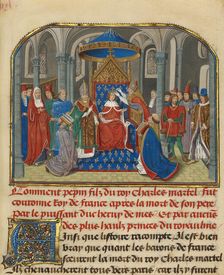 Comment pepin filz du roy Charles martel fut
couronne roy de france apres la mort de son pere
par le puissant duc heruy de mes Et par aucuns
des plus haulx princes du royaume
Ainsi que listoire racompte Il est bien
vray que quant les barons de france
sceurent la mort du roy Charles martel
Ilz cheuaucherent tous vers paris car il fut